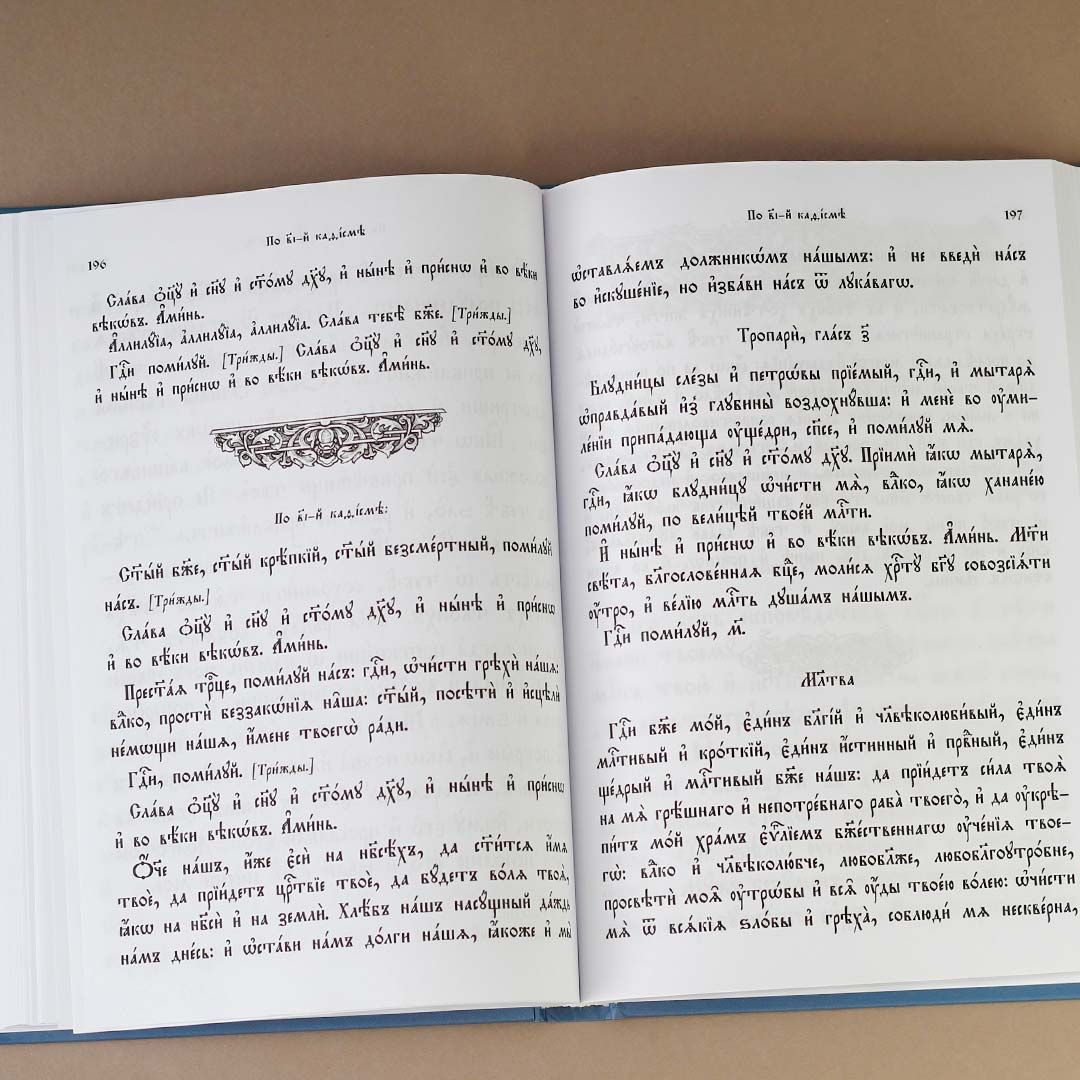 По в҃і-й каѳі́смѣ
196
Сла́ва ѻ҆ц҃ꙋ̀ и҆ сн҃ꙋ и҆ ст҃о́мꙋ дх҃ꙋ, и҆ ны́нѣ и҆ при́снѡ и҆ во вѣ́ки
вѣкѡ́въ. А҆ми́нь.
А҆ллилꙋ́їа, а҆ллилꙋ́їа, а҆ллилꙋ́їа. Сла́ва тебѣ̀ бж҃е. [Три́жды.]
Гдⷭ҇и поми́лꙋй. [Три́жды.] Сла́ва ѻ҆ц҃ꙋ̀ и҆ сн҃ꙋ и҆ ст҃о́мꙋ дх҃ꙋ,
и҆ ны́нѣ и҆ при́снѡ и҆ во вѣ́ки вѣкѡ́въ. А҆ми́нь.
По в҃і-й каѳі́смѣ:
Ст҃ы́й бж҃е, ст҃ы́й крѣ́пкїй, ст҃ы́й безсме́ртный, поми́лꙋй
на́съ. [Три́жды.]
Сла́ва ѻ҆ц҃ꙋ̀ и҆ сн҃ꙋ и҆ ст҃о́мꙋ дх҃ꙋ, и҆ ны́нѣ и҆ при́снѡ
и҆ во вѣ́ки вѣкѡ́въ. А҆ми́нь.
Прест҃а́ѧ трⷪ҇це, поми́лꙋй на́съ: гдⷭ҇и, ѡ҆чи́сти грѣхѝ на́шѧ:
влⷣко, простѝ беззакѡ́нїѧ на̑ша: ст҃ы́й, посѣтѝ и҆ и҆сцѣлѝ
не́мѡщи на́шѧ, и҆́мене твоегѡ̀ ра́ди.
Гдⷭ҇и, поми́лꙋй. [Три́жды.]
Сла́ва ѻ҆ц҃ꙋ̀ и҆ сн҃ꙋ и҆ ст҃о́мꙋ дх҃ꙋ, и҆ ны́нѣ и҆ при́снѡ
и҆ во вѣ́ки вѣкѡ́въ. А҆ми́нь.
Ѻ҆́ч҃е на́шъ, и҆́же є҆сѝ на нб҃сѣ́хъ, да ст҃и́тсѧ и҆́мѧ
твоѐ, да прїи́детъ црⷭ҇твїе твоѐ, да бꙋ́детъ во́лѧ твоѧ̀,
ꙗ҆́кѡ на нб҃сѝ и҆ на землѝ. Хлѣ́бъ на́шъ насꙋ́щный да́ждь
на́мъ дне́сь: и҆ ѡ҆ста́ви на́мъ до́лги на́шѧ, ꙗ҆́коже и҆ мы̀
По в҃і-й каѳі́смѣ
197
ѡ҆ставлѧ́емъ должникѡ́мъ на́шымъ: и҆ не введѝ на́съ
во и҆скꙋше́нїе, но и҆зба́ви на́съ ѿ лꙋка́вагѡ.
Тропарѝ, гла́съ з҃
Блꙋдни́цы сле́зы и҆ петро́вы прїе́мый, гдⷭ҇и, и҆ мытарѧ̀
ѡ҆правда́вый и҆з̾ глꙋбины̀ воздохнꙋ́вша: и҆ менѐ во ᲂу҆ми-
ле́нїи припа́дающа ᲂу҆ще́дри, сп҃се, и҆ поми́лꙋй мѧ̀.
Сла́ва ѻ҆ц҃ꙋ̀ и҆ сн҃ꙋ и҆ ст҃о́мꙋ дх҃ꙋ. Прїимѝ ꙗ҆́кѡ мытарѧ̀,
гдⷭ҇и, ꙗ҆́кѡ блꙋдни́цꙋ ѡ҆чи́сти мѧ̀, влⷣко, ꙗ҆́кѡ ханане́ю
поми́лꙋй, по вели́цѣй твое́й млⷭ҇ти.
И҆ ны́нѣ и҆ при́снѡ и҆ во вѣ́ки вѣкѡ́въ. А҆ми́нь. Мт҃и
свѣ́та, бл҃гослове́ннаѧ бцⷣе, моли́сѧ хрⷭ҇тꙋ̀ бг҃ꙋ совозсїѧ́ти
ᲂу҆́тро, и҆ ве́лїю млⷭ҇ть дꙋша́мъ на́шымъ.
Гдⷭ҇и поми́лꙋй, м҃.
Мл҃тва
Гдⷭ҇и бж҃е мо́й, є҆ди́нъ бл҃гі́й и҆ чл҃вѣколюби́вый, є҆ди́нъ
млⷭ҇тивый и҆ кро́ткїй, є҆ди́нъ и҆́стинный и҆ првⷣный, є҆ди́нъ
ще́дрый и҆ млⷭ҇тивый бж҃е на́шъ: да прїи́детъ си́ла твоѧ̀
на мѧ̀ грѣ́шнаго и҆ непотре́бнаго раба̀ твоего̀, и҆ да ᲂу҆крѣ-
пи́тъ мо́й хра́мъ є҆ѵⷢ҇лїемъ бж҃е́ственнагѡ ᲂу҆че́нїѧ твое-
гѡ̀: влⷣко и҆ чл҃вѣколю́бче, любобл҃же, любобл҃гоꙋтро́бне,
просвѣтѝ моѧ̑ ᲂу҆трѡ́бы и҆ всѧ̑ ᲂу҆́ды твое́ю во́лею: ѡ҆чи́сти
мѧ̀ ѿ всѧ́кїѧ ѕло́бы и҆ грѣха̀, соблюди́ мѧ нескве́рна,